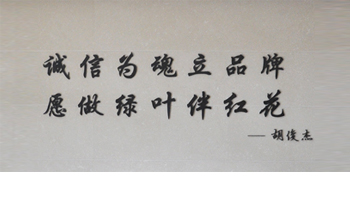 诚信为魂立品牌
愿做绿叶伴红花
— 胡俊杰